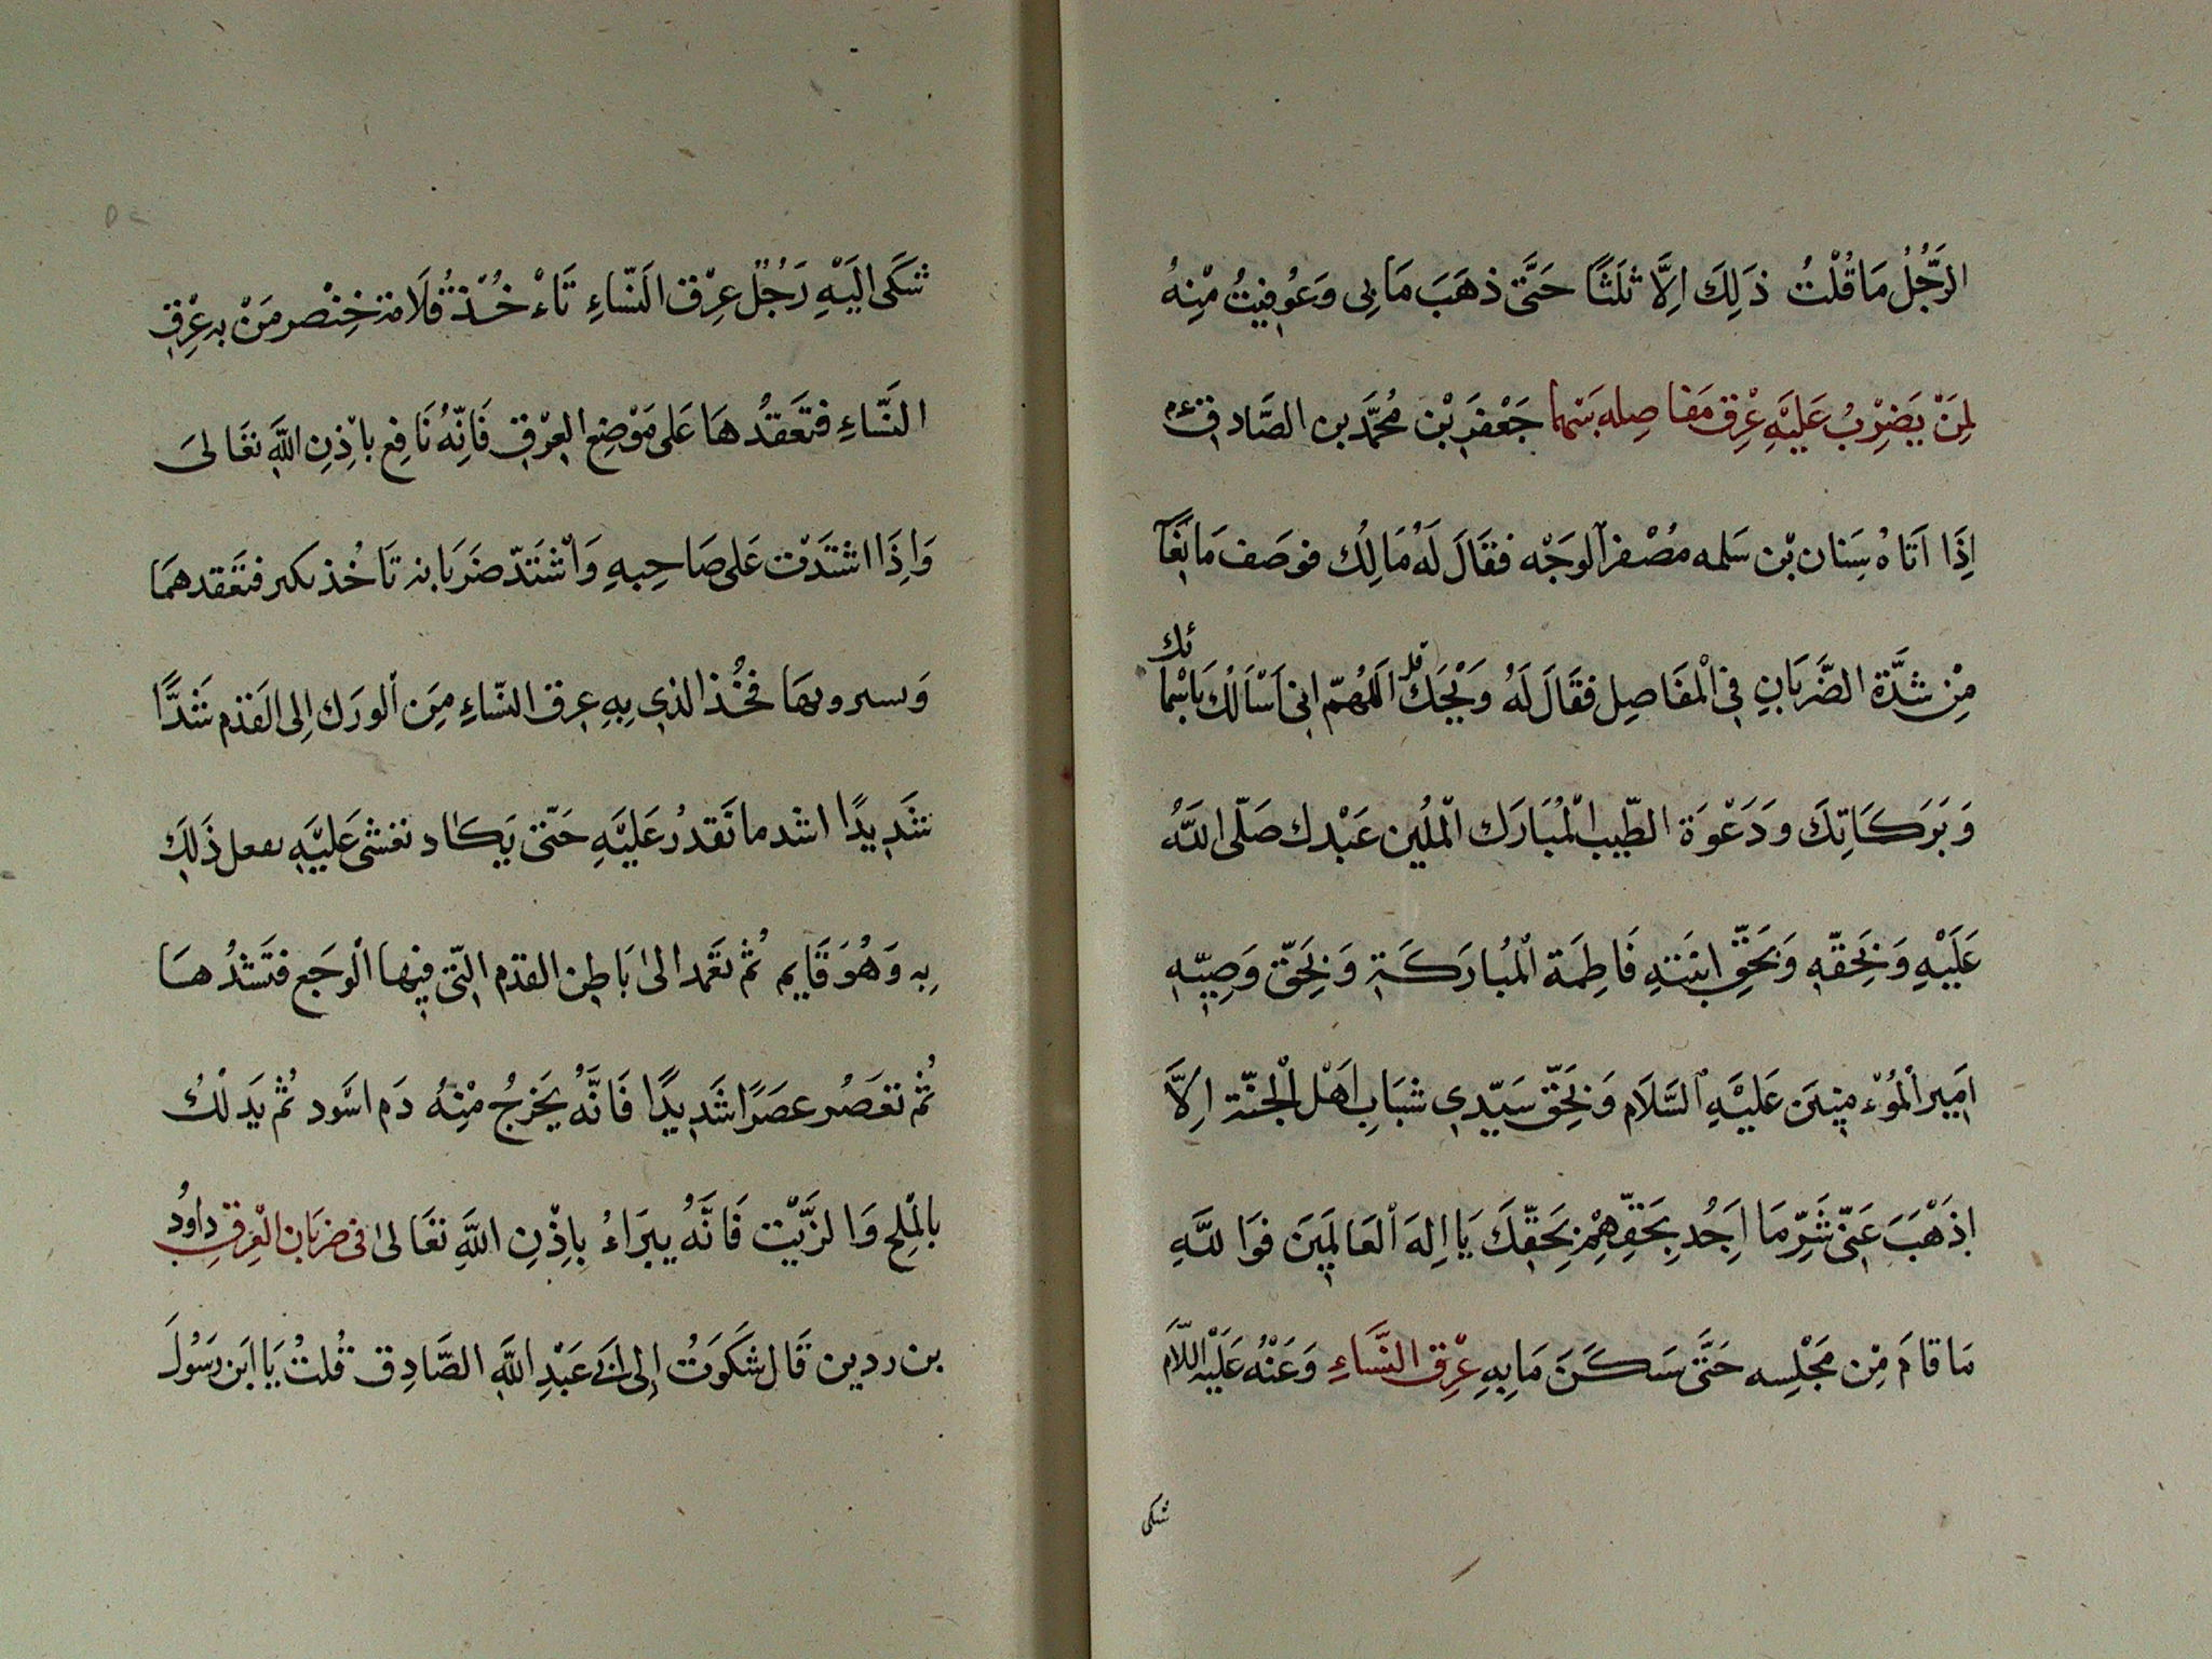 الرَّجُلُ مَا قُلْتُ ذَلِكَ اِلَّا ثَلَثًا حَتَّى ذَهَبَ مَا بِى وَعُوفِيتُ مِنْهُ
لِمَنْ يَضْرِبُ عَلَيْهِ عِرْق مَفاصِلِه بَيْنَمَا جَعْفَر بْن مُحَمَّد بن الصَّادق
اِذَا اَتَاهُ سِنَان بْن سَلمه مُصْفر الوَجْه فقَالَ لَهُ مَالِكُ فوَصَف مَا
مِنْ شِدَّة الضَّرَبَانِ فِى الْمَفَاصِل فقَالَ لَهُ وَيْحَكَ قل اَللهُمّ اِنى اَسْاَلُكَ بِاَسْمائك
وَبَرَكَاتِكَ وَدَعْوَة الطّيب الْمُبَارَك الْمكِين عَبْدِك صَلّى اللّهُ
عَلَيْهِ وَبِحَقّهِ وَبِحَقّ ابنَتهِ فَاطِمَة الْمُبارَكَةِ وَبِحَقّ وَصِيّهِ
اَمِير الْمُوْءمِنِينَ عَلَيْهِ السَّلَام وَبِحَقّ سَيّدِي شبَابِ اَهْل الْجَنّة اِلّا
اذْهَبْ عَنّى شَرّ مَا اَجُد بِحَقِّهِمْ بِحَقّكَ يَا اِلهَ الْعَالَمِينَ فوَاللّهِ
مَا قامَ مِن مَجْلِسه حَتَّى سَكَنَ مَا بِهِ عِرْق النَّسَاءِ وَعَنْهُ عَلَيْهِ السَّلَام
شكى
شَكَى اِلَيْهِ رَجُلٌ عِرْق النّسَاءِ تَاْءخُذ قُلَامة خِنْصر مَنْ به عِرْق
النّسَاءِ فتَعَقدُهَا عَلى مَوْضِع العِرْق فَانّهُ نَافِع بِاِذْنِ اللّهِ تعَالىَ
وَاِذَا اشتَدّت عَلى صَاحِبهِ وَاشْتَدّ ضَرَبَانه تَاخُذ تكتر فتَعقدهمَا
وَ بهَا فخُذ الذي بِهِ عِرق النّسَاءِ مِنَ الورَك اِلى القَدَم شَدًّا
شَدِيدًا اشد ما تَقدرُ عَلَيْهِ حَتّى يَكاد تغشى عَلَيْهِ تفعل ذَلِكَ
بِه وَهُوَ قَايِم ثُمّ تعْمد الىٰ بَاطِن القدَم التّى فِيها الْوجَع فتَشدُّهَا
ثُمّ تعصُر عصرًا شَدِيدًا فَانَّهُ يَخرجُ مِنْهُ دَم اسَود ثُمّ يَدلكُ
بالْملِح وَالزّيْت فَانّهُ يبرَاءُ بِاِذْنِ اللّهِ تعَالىٰ فى ضرَبَان الْعِرق داودُ
بن ردين قَال شكَوتُ اِلى ابى عَبْدِ اللّهِ الصّادِق قُلتُ يَا ابَن رسُولَ